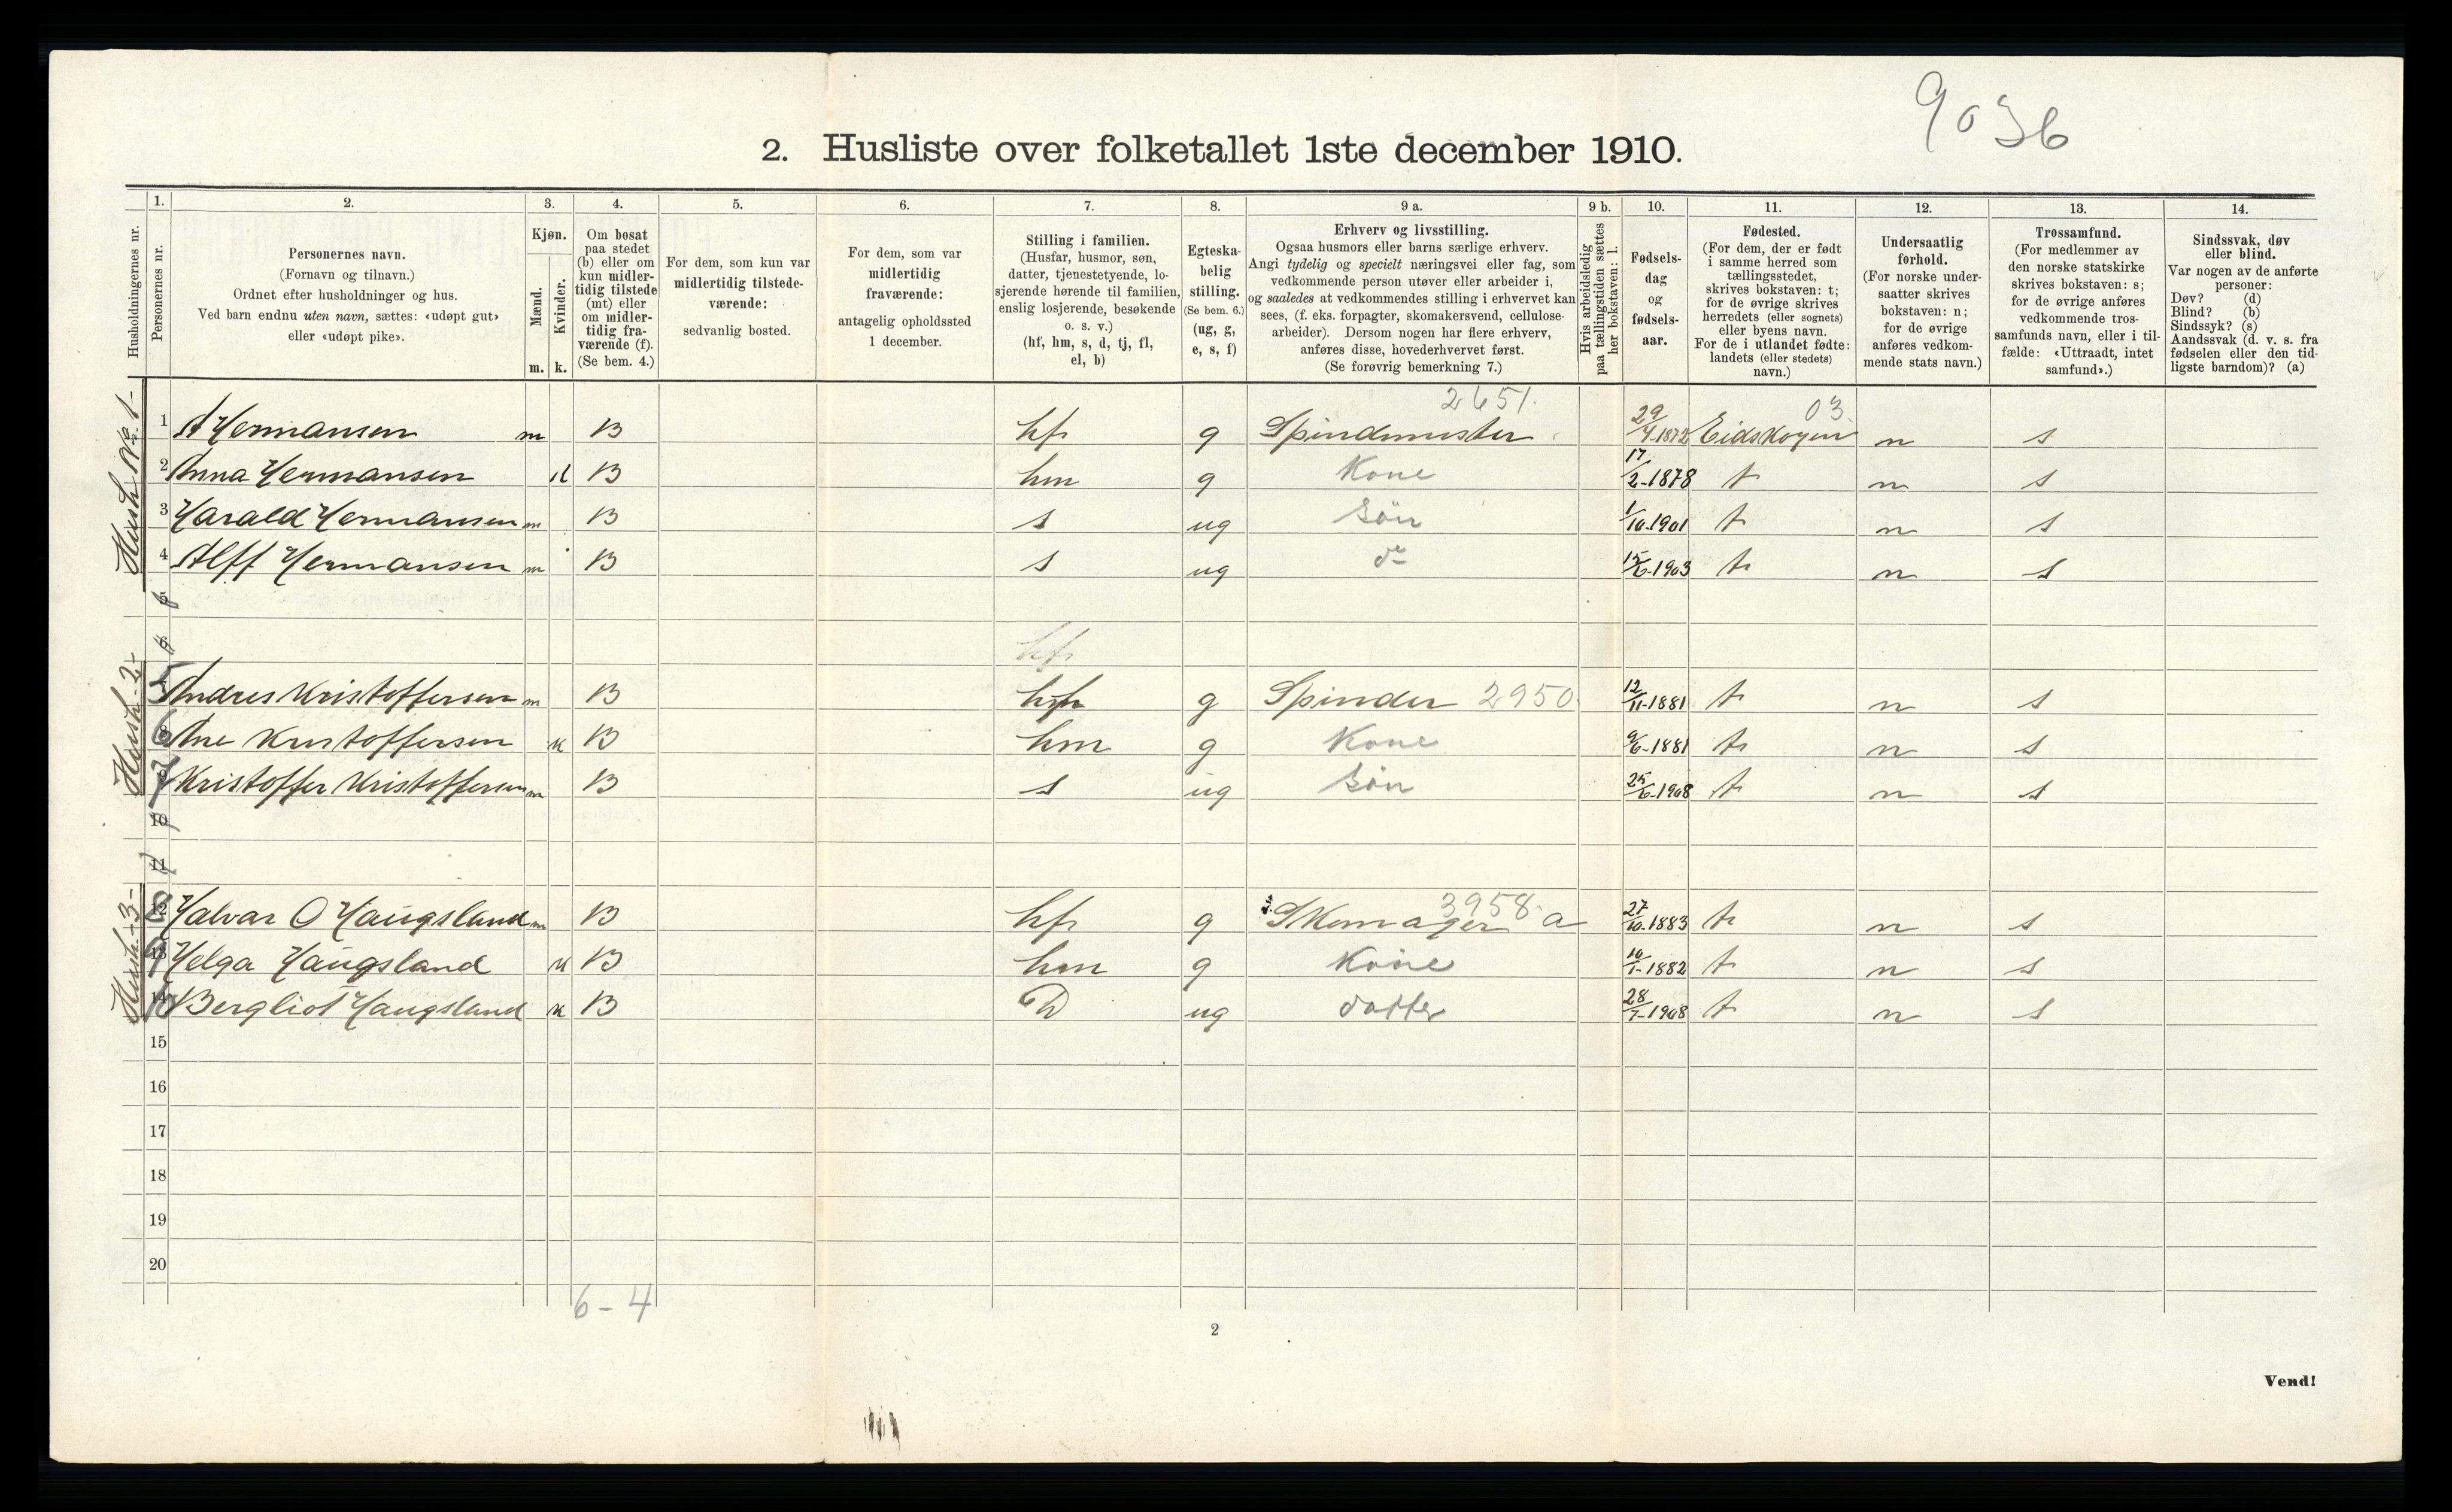 9036
2. Husliste over folketallet 1ste december 1910.
Husholdningernes nr.
1.
Personernes nr.
2.
Personernes navn.
(Fornavn og tilnavn.)
Ordnet efter husholdninger og hus.
Ved barn endnu uten navn, sættes: «udøpt gut»
eller «udøpt pike».
3.
Kjøn.
Mænd.
Kvinder.
m. k.
4.
Om bosat
paa stedet
(b) eller om
kun midler-
tidig tilstede
(mt) eller
om midler-
tidig fra-
værende (f).
(Se bem. 4.)
5.
For dem, som kun var
midlertidig tilstede-
værende:
sedvanlig bosted.
6.
For dem, som var
midlertidig
fraværende:
antagelig opholdssted
1 december.
7.
Stilling i familien.
(Husfar, husmor, søn,
datter, tjenestetyende, lo-
sjerende hørende til familien,
enslig losjerende, besøkende
o. s. v.)
(hf, hm, s, d, tj, fl,
el, b)
8.
Egteska-
belig
stilling.
(Se bem. 6.)
(ug, g,
e, s, f)
9 a.
Erhverv og livsstilling.
Ogsaa husmors eller barns særlige erhverv.
Angi tydelig og specielt næringsvei eller fag, som
vedkommende person utøver eller arbeider i,
og saaledes at vedkommendes stilling i erhvervet kan
sees, (f. eks. forpagter, skomakersvend, cellulose-
arbeider). Dersom nogen har flere erhverv,
anføres disse, hovederhvervet først.
(Se forøvrig bemerkning 7.)
9 b.
Hvis arbeidsledig
paa tællingstiden sættes
her bokstaven: l.
10.
Fødsels-
dag
og
fødsels-
aar.
11.
Fødested.
(For dem, der er født
i samme herred som
tællingsstedet,
skrives bokstaven: t;
for de øvrige skrives
herredets (eller sognets)
eller byens navn.
For de i utlandet fødte:
landets (eller stedets)
navn.)
12.
Undersaatlig
forhold.
(For norske under-
saatter skrives
bokstaven: n;
for de øvrige
anføres vedkom-
mende stats navn.)
13.
Trossamfund.
(For medlemmer av
den norske statskirke
skrives bokstaven: s;
for de øvrige anføres
vedkommende tros-
samfunds navn, eller i til-
fælde: «Uttraadt, intet
samfund».)
14.
Sindssvak, døv
eller blind.
Var nogen av de anførte
personer:
Døv? (d)
Blind? (b)
Sindssyk? (s)
Aandssvak (d. v. s. fra
fødselen eller den tid-
ligste barndom)? (a)
Hush No. 1-
2651. 03.
1 A Hermansen m B hf g Spindmester 29/4-1872 Eidskogen n s
2 Anna Hermansen k B hm g Kone 17/2-1878 t n s
3 Harald Hermansen m B s ug Sön 1/10-1901 t n s
4 Alff Hermansen m B s ug do 15/6-1903 t n s
5
6 hf
Hush. 2-
5 Andres Kristoffersen m B hf g Spinder 2950. 12/11-1881 t n s
6 Ane Kristoffersen k B hm g Kone 9/6-1881 t n s
7 Kristoffer Kristoffersen m B s ug Sön 25/6-1908 t n s
10
11
Hush. 3-
3958.
8 Halvar O Haugsland m B hf g Skomager a 27/10-1883 t n s
9 Helga Haugsland k B hm g Kone 10/1-1882 t n s
10 Bergliot Haugsland k B D ug datter 28/7-1908 t n s
15
16
17
18
19
20
6-4
2
Vend!